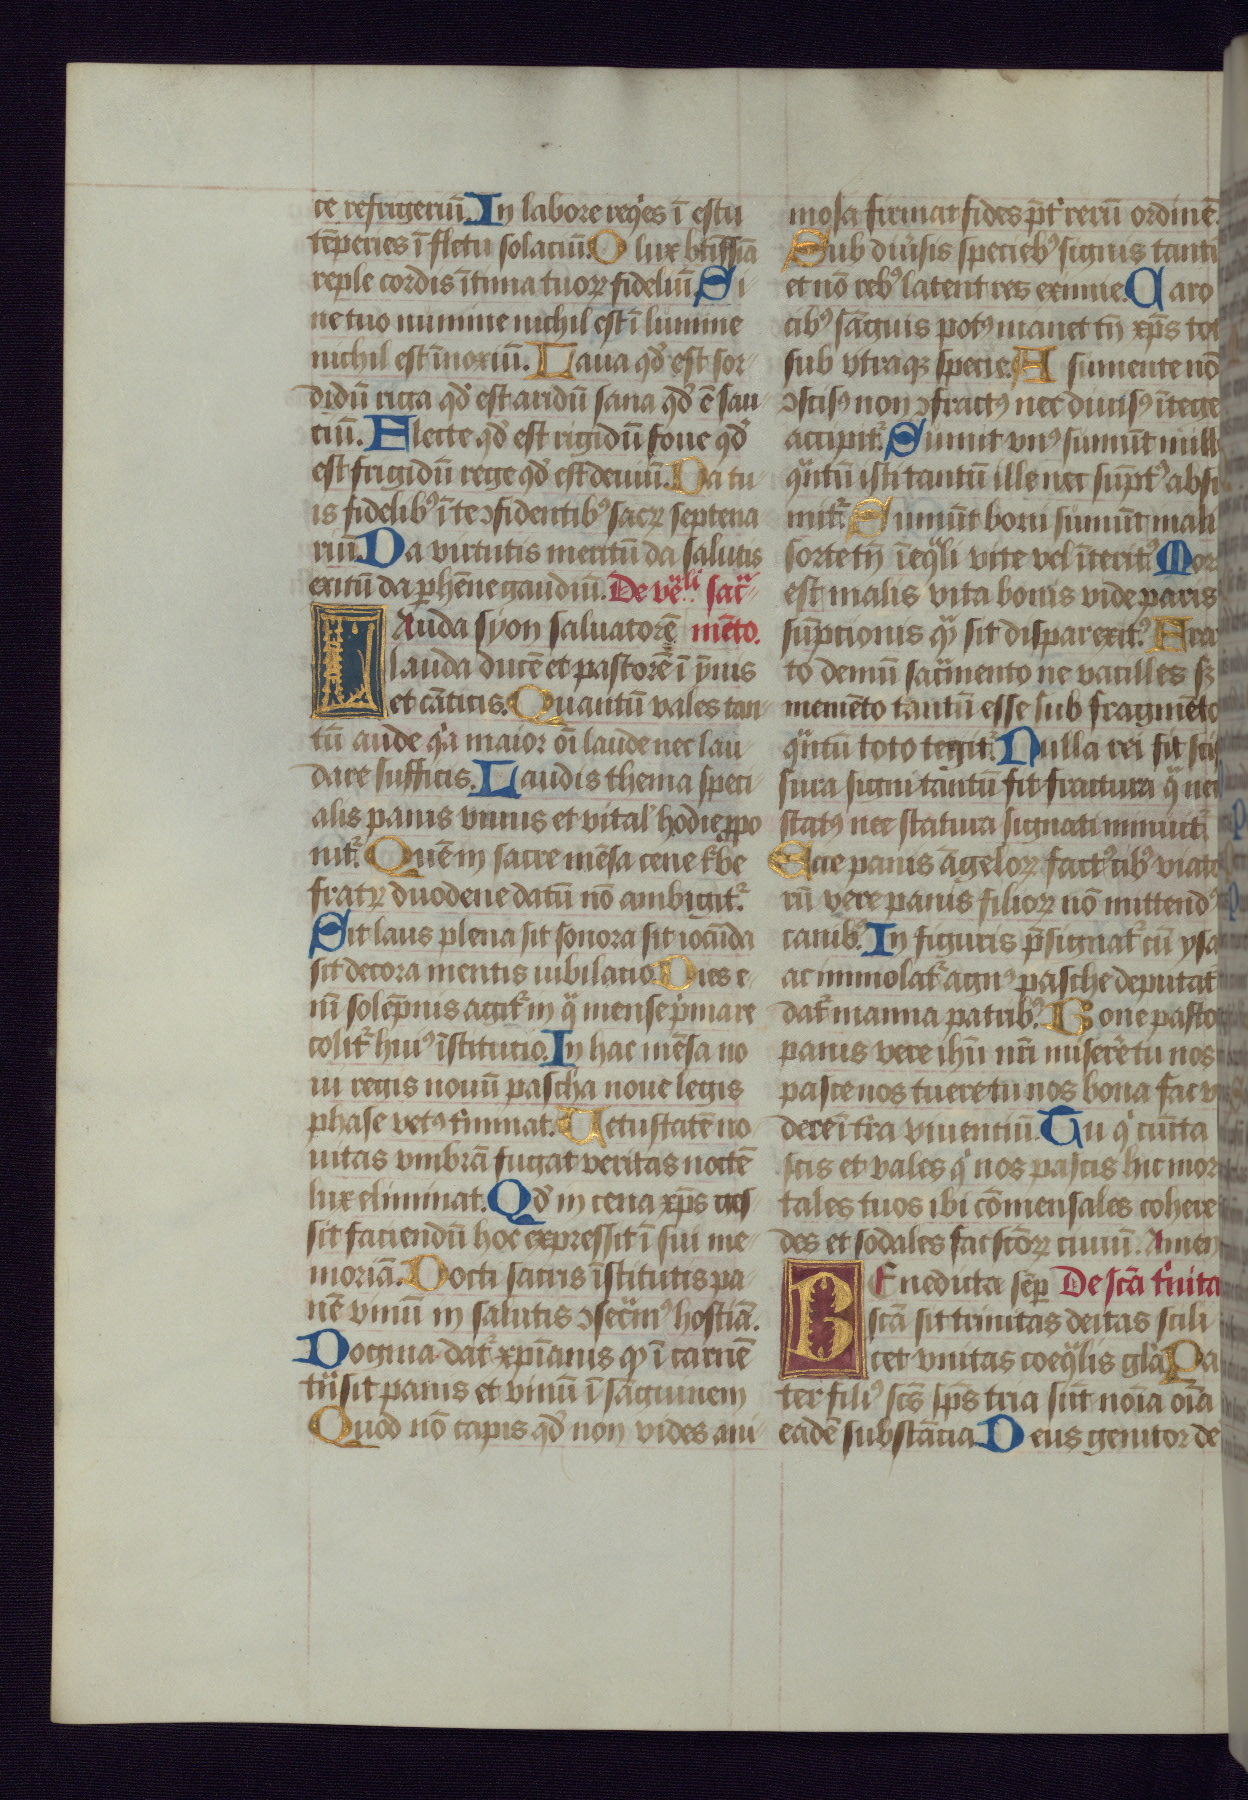 ce refrigeriū. In labore reqͥes ī estu
tēperies ī fletu solaciū. O lux btīssīa
reple cordis ītima tuoꝝ fideliū. Si
ne tuo numine nichil est ī lumine
nichil est īnoxiū. Laua qđ est sor-
didū riga qđ est aridū sana qđ ē sau
ciū. Flecte qđ est rigidū foue qđ
est frigidū rege qđ est deuiū. Da tu
is fidelibꝰ ī te ↄfidentibꝰ sacꝝ septena
riū. Da virtutis meritū da salutis
exitū da phēne gaudiū. De vēͣli sac̄ͣ-
LAuda syon saluatorē mēto.
lauda ducē et pastorē ī ymis
et cāticis. Quantū vales tan-
tū aude qͥa maior oī laude nec lau
dare sufficis. Laudis thema speci-
alis panis viuus et vitalꝭ hodie ꝓpo
nitͬ. Quē in sacre mēsa cene t͛be
fratꝝ duodene datū nō ambigitͬ.
Sit laus plena sit sonora sit iocūda
sit decora mentis iubilacio. Dies e-
nī solēpnis agitͬ in qͣ mense pͥma re
colitͬ hiuꝰ īstitucio. In hac mēsa no
ui regis nouū pascha noue legis
phase vetꝰ t͛minat. Uetustatē no
uitas vmbrā fugat veritas noctē
lux eliminat. Qđ in cena xp̄s ges-
sit faciendū hoc expressit ī sui me-
moriā. Docti sacris īstitutis pa-
nē vinū in salutis ↄsecͣmꝰ hostiā.
Dogma datͬ xp̄ianis qͩ ī carnē
trͣnsit panis et vinū ī sāguinem
Quod nō capis qđ non vides ani-
mosa firmat fides p̄t͛ rerū ordinē.
Sub diu͛sis speciebꝰ signis tanti
et nō rebꝰ latent res eximie. Caro
cibꝰ sāguis potꝰ manet tn̄ xp̄s tot
sub vtraqꝫ specie. A sumente nō
ↄscisꝰ non ↄfractꝰ nec diuisꝰ ītege
accipitͬ. Sumit vnꝰ sumūt mill
qͣntū isti tantū ille nec sūptꝰ absu
mitͬ. Sumūt boni sumūt mali
sorte tn̄ īeqͣli vite vel īteritꝰ. Mor
est malis vita bonis vide paris
sūptionis qͣ sit dispar exitꝰ. Frac
to demū sacͣmento ne vacilles sꝫ
memēto tantū esse sub fragmēto
qͣntū toto tegitͬ. Nulla rei fit scis
sura signi tantū fit fractura qͣ nec
statꝰ nec statura signati minuitͬ
Ecce panis āgeloꝝ factꝰ cibꝰ viato
rū vere panis filioꝝ nō mittendꝰ
canibꝰ. In figuris p̄signatͬ cū ysa
ac immolatͬ agnꝰ pasche deputatͬ
datͬ manna patribꝰ. Bone pasto
panis vere ihū nr̄i miserētu nos
pasce nos tuere tu nos bona fac vi
dere ī t͛ra viuentiū. Tu qͥ cūcta
scis et vales qͥ nos pascis hic mor
tales tuos ibi cōmensales cohere
des et sodales fac scōꝝ ciuiū. Amen
BEnedicta semꝑ De scā tͥnita
scā sit trinitas deitas scili
cet vnitas coeqͣlis glā. Pa
ter filiꝰ scs̄ sp̄s tria sūt noīa oīa
eadē substācia. Deus genitor de